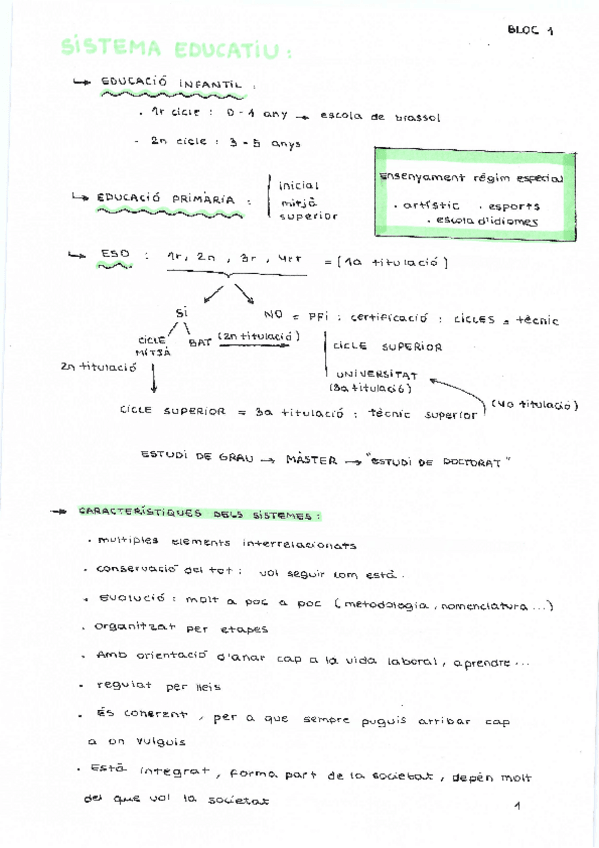 BLOC 1
SISTEMA EDUCATIU :
↳ EDUCACIÓ INFANTIL :
· 1r cicle : 0 - 1 any → escola de brassol
- 2n cicle : 3 - 5 anys
Ensenyament règim especial
· artístic · esports
· escola d'idiomes
↳ EDUCACIÓ PRIMÀRIA :
inicial
mitjà
superior
↳ ESO : 1r, 2n , 3r , 4rt = [1a titulació]
SI
NO = PFI : certificació : CICLES = tècnic
CICLE MITJÀ
BAT (2n titulació)
2n titulació
CICLE SUPERIOR
UNIVERSITAT
(3a titulació)
CICLE SUPERIOR = 3a titulació : tècnic superior
(4a titulació)
ESTUDI DE GRAU → MÀSTER → "ESTUDI DE DOCTORAT"
→ CARACTERÍSTIQUES DELS SISTEMES :
· multiples elements interrelacionats
· conservació del tot : vol seguir com està.
· Evolució : molt a poc a poc (metodologia, nomenclatura ...)
· organitzat per etapes
· Amb orientació d'anar cap a la vida laboral, aprendre ...
· regulat per lleis
· És coherent , per a que sempre puguis arribar cap
a on vulguis
· Està integrat , forma part de la societat , depèn molt
del que vol la societat
1